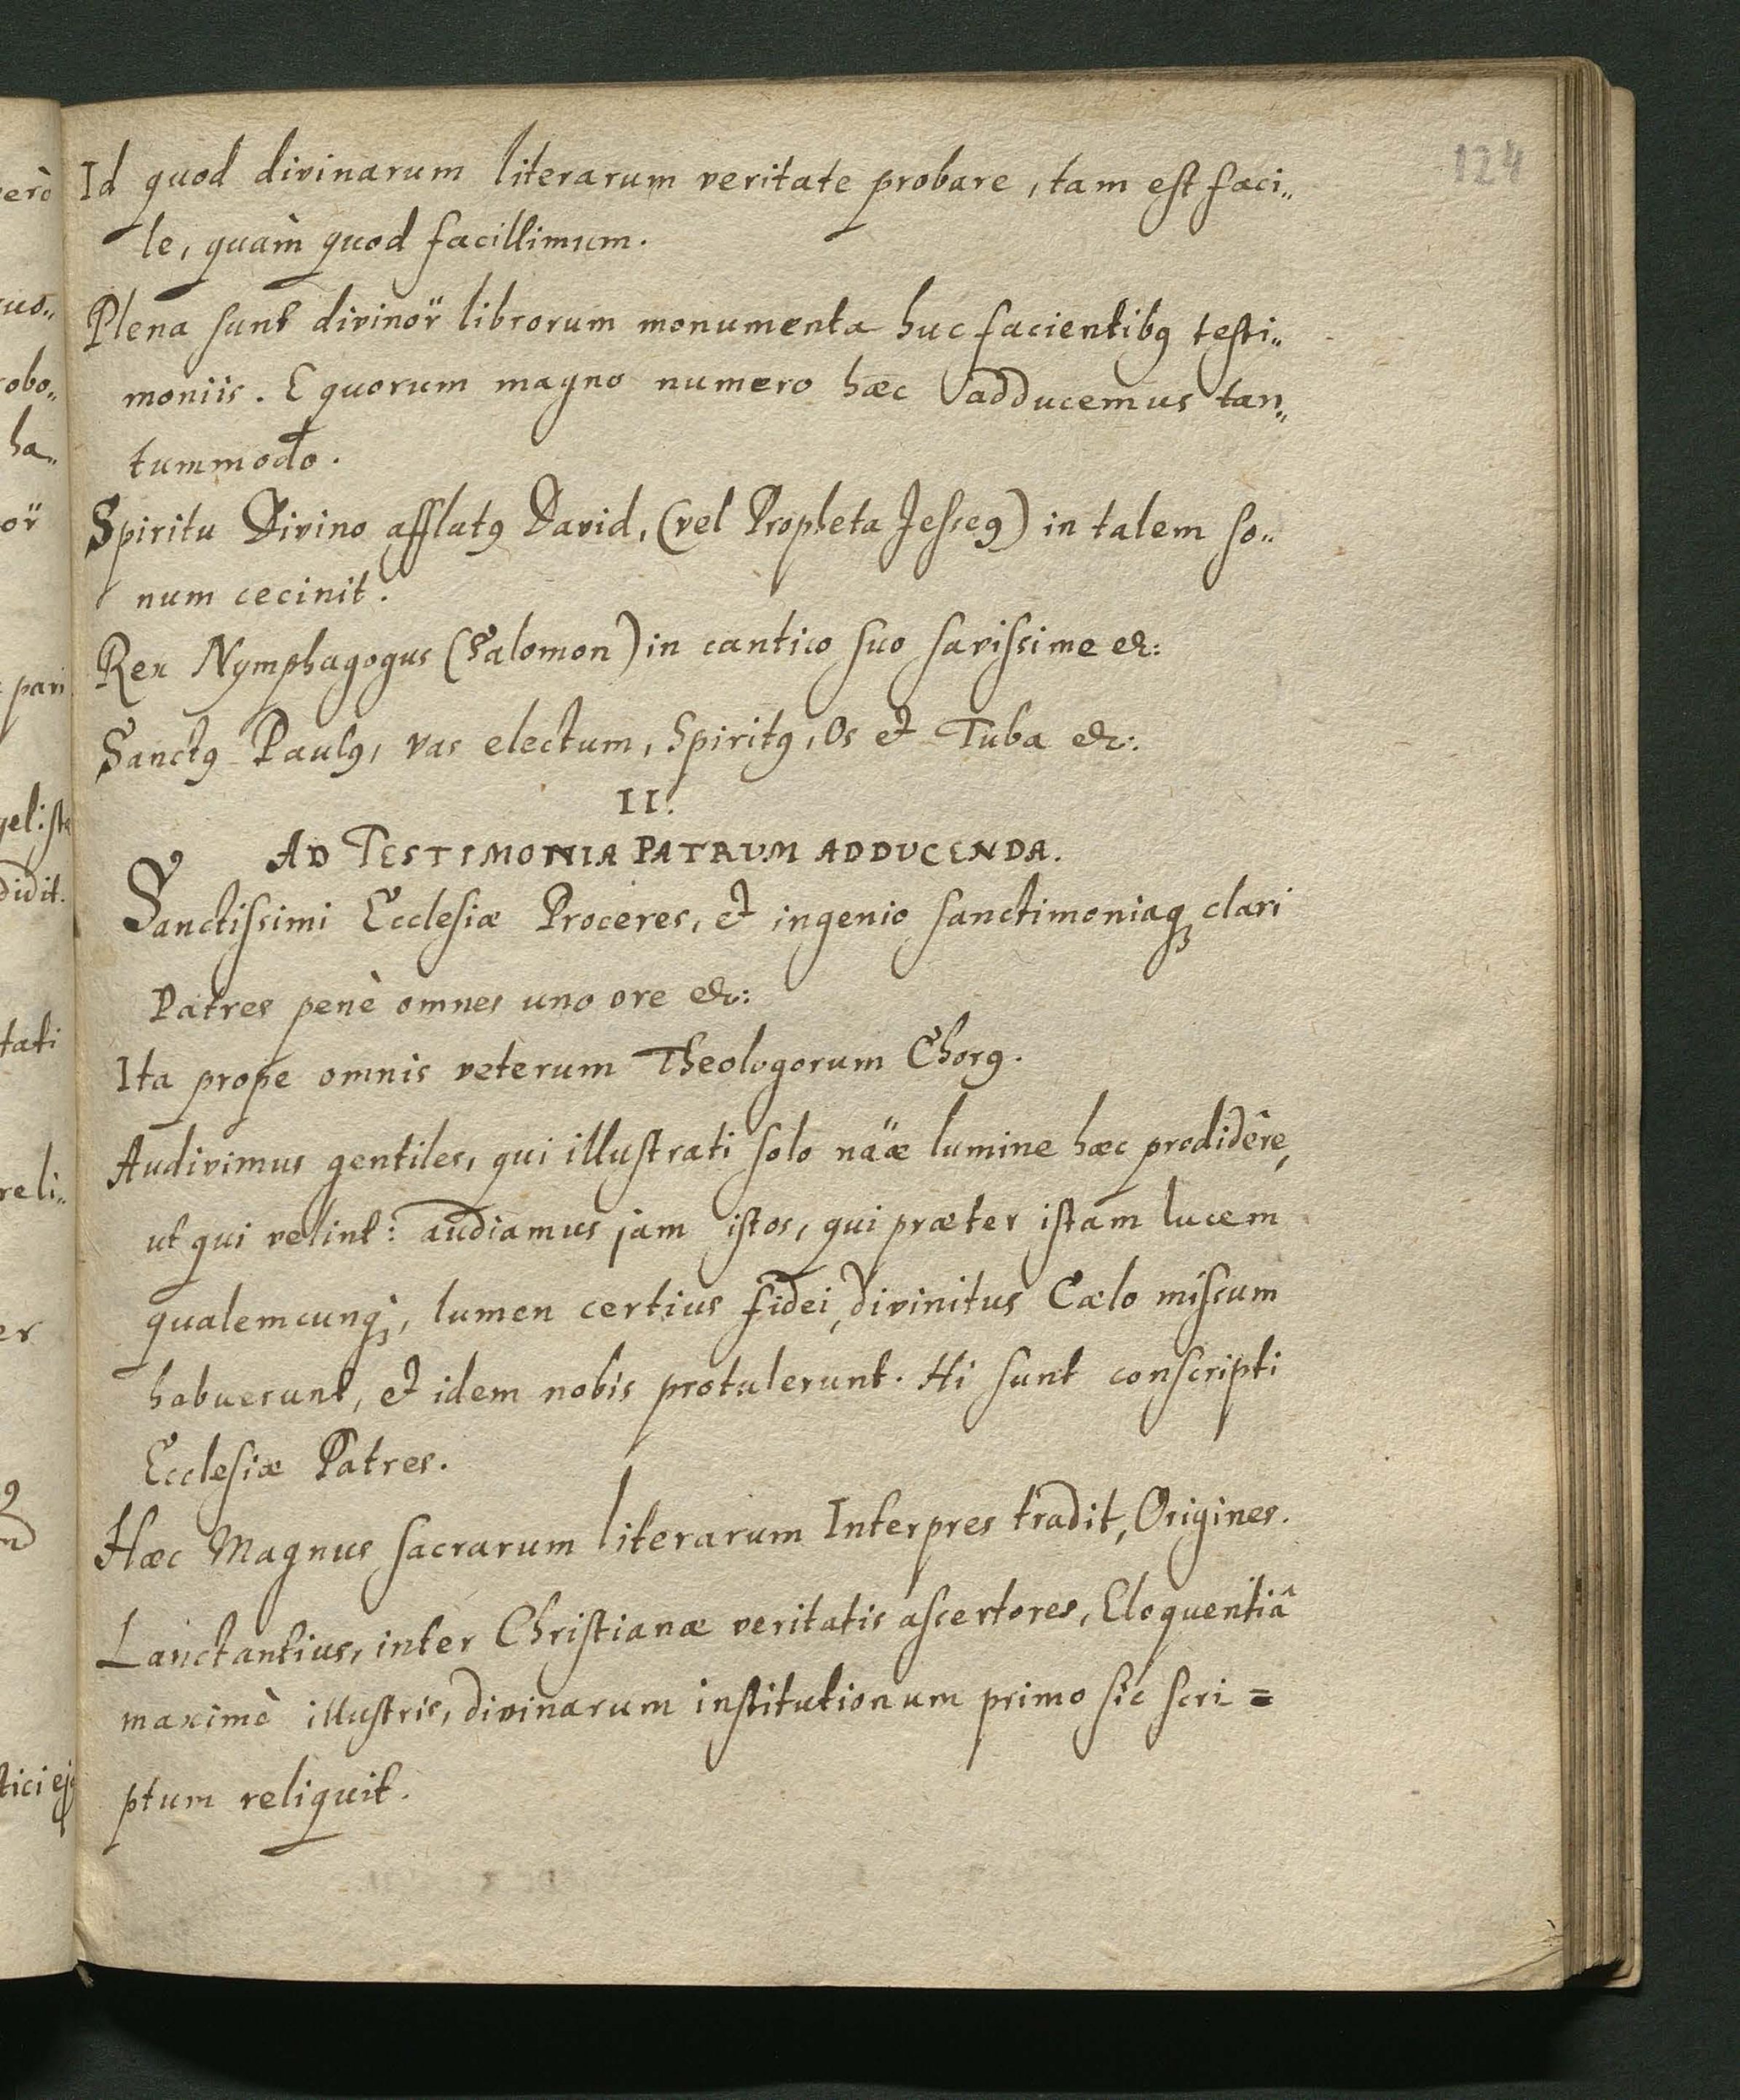 124
Id quod divinarum literarum veritate probare, tam est faci„
le, quàm quod facillimum.
Plena sunt divinor̈ librorum monumenta huc facientibꝰ testi„
moniis. E quorum magno numero hæc adducemus tan„
tummodo.
Spiritu Divino afflatꝰ David, (vel Propheta Jesseꝰ) in talem so„
num cecinit.
Rex Nymphagogus (Salomon) in cantico suo savissime &c:
Sanctꝰ Paulꝰ, vas electum, Spiritꝰ, Os et Tuba &c:
II.
AD TESTIMONIA PATRVM ADDVCENDA.
Sanctissimi Ecclesiæ Proceres, et ingenio sanctimoniaqꝫ clari
Patres penè omnes uno ore &c:
Ita prope omnis veterum Theologorum Chorꝰ.
Audivimus gentiles, qui illustrati solo näæ lumine hæc prodidêre,
ut qui velint: audiamus jam istos, qui præter istam lucem
qualemcunqꝫ, lumen certius fidei, divinitus Cælo missum
habuerunt, et idem nobis protulerunt. Hi sunt conscripti
Ecclesiæ Patres.
Hæc Magnus sacrarum literarum Interpres tradit, Origines.
Lanctantius, inter Christianæ veritatis assertores, Eloquentiâ
maximè illustris, divinarum institutionum primo sic scri=
ptum reliquit.